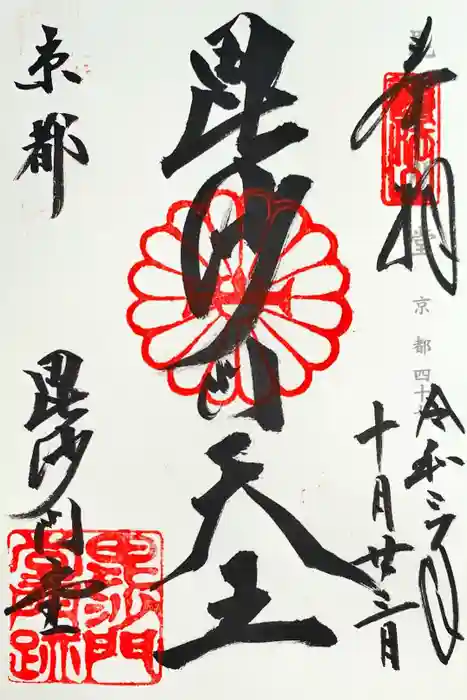 奉拝
令和三年
十月廿三日
毘沙門天王
京都
毘沙門堂
京都四十